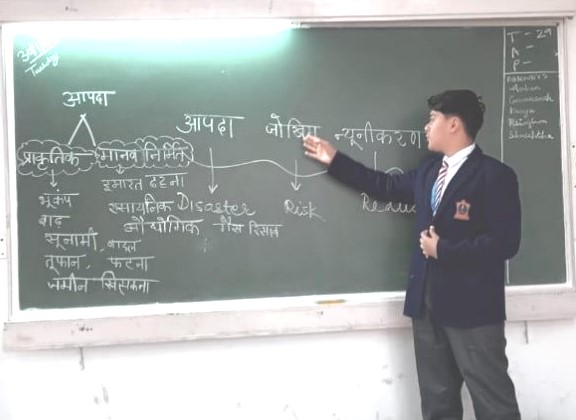 Tuesday
आपदा
आपदा जोखिम न्यूनीकरण
प्राकृतिक मानव निर्मित
Disaster Risk
भूकंप
बाढ़
सूनामी, बादल
तूफान, फटना
जमीन खिसकना
इमारत ढहना
रसायनिक
औद्योगिक गैस रिसाव
T - 29
A -
P -